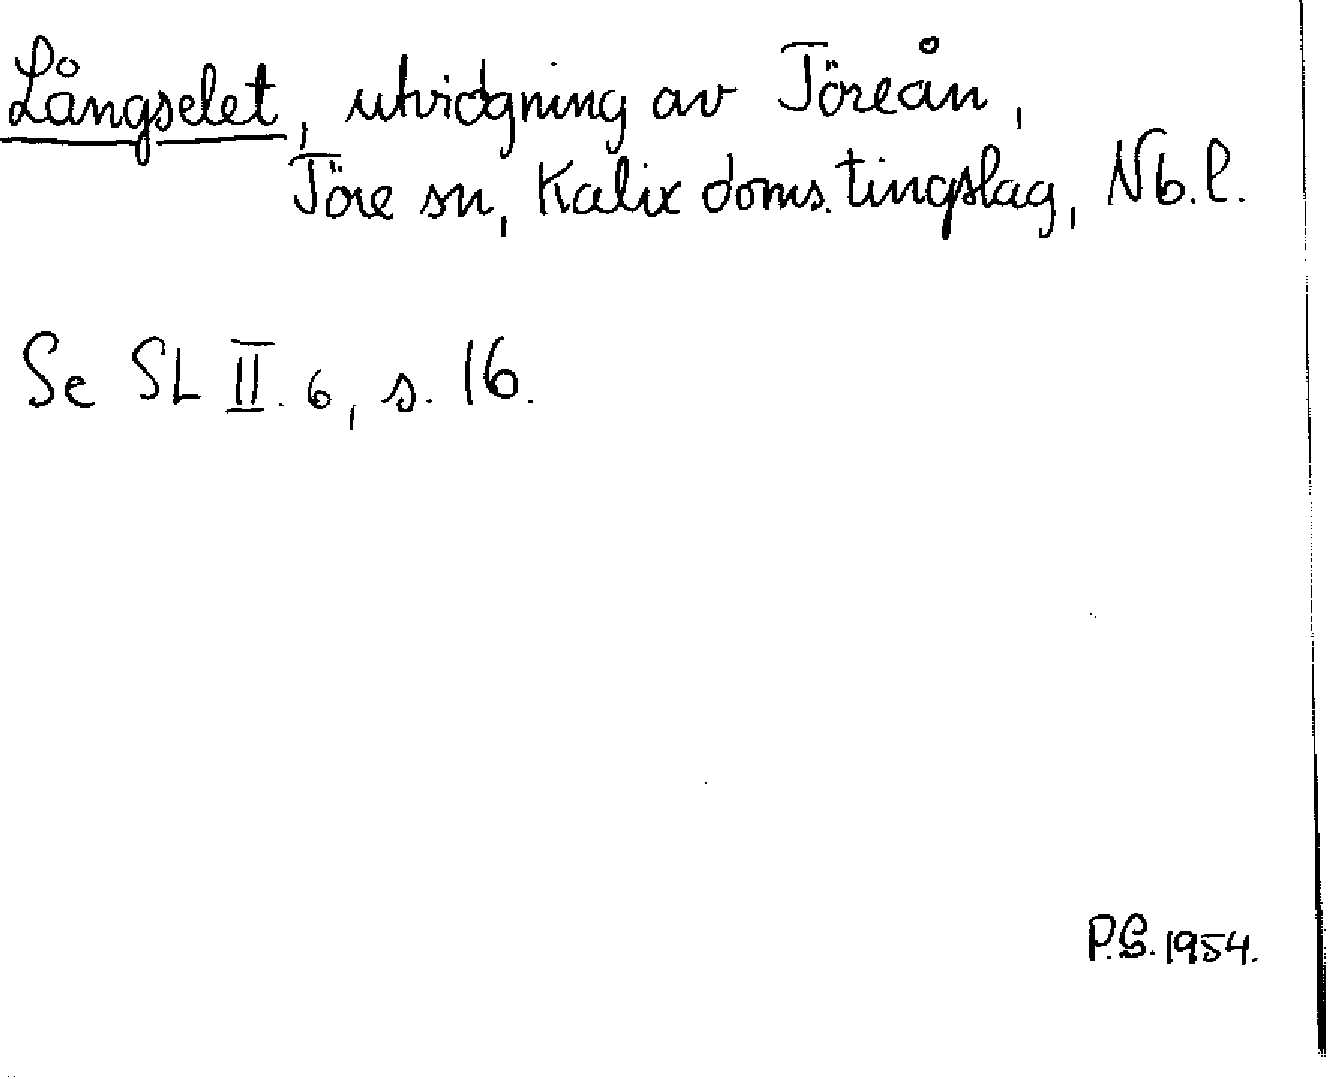 Långselet, utvidgning av Töreån,
Töre sn, Kalix doms. tingslag, Nb. l.
Se SL II. 6, s. 16.
P.G. 1954.